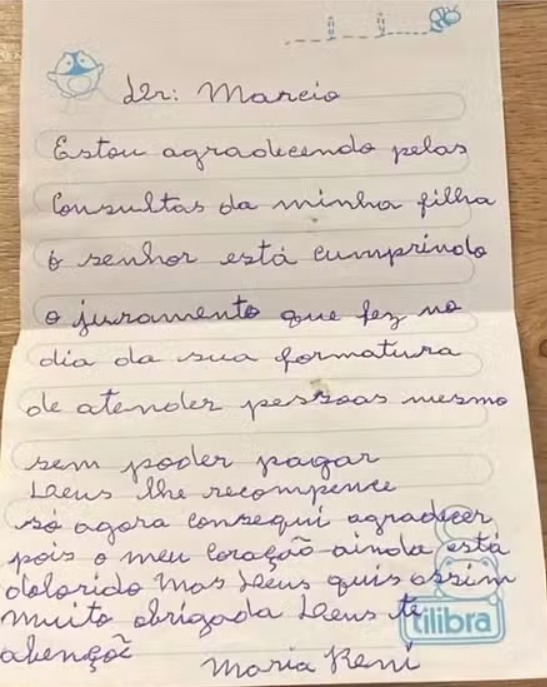 Dr: Marcio
Estou agradecendo pelas
Consultas da minha filha
o senhor está cumprindo
o juramento que fez no
dia da sua formatura
de atender pessoas mesmo
sem poder pagar
Deus lhe recompence
só agora consegui agradecer
pois o meu coração ainda está
dolorido mas Deus quis assim
muito obrigada Deus te
abençoê
Maria Reni
tilibra